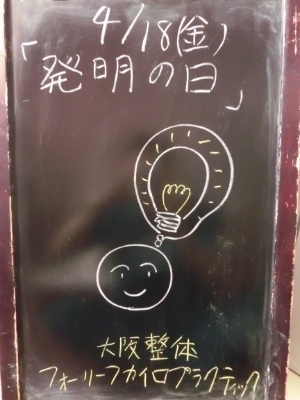 4/18(金)
「発明の日」
大阪整体
フォーリーフカイロプラクティック